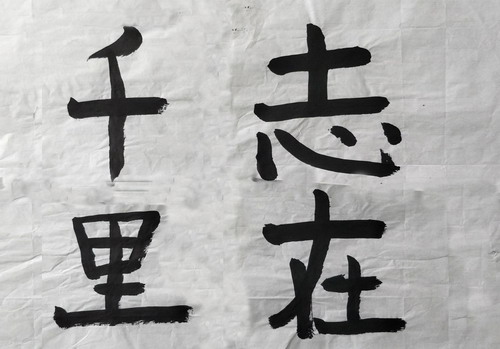 志在
千里